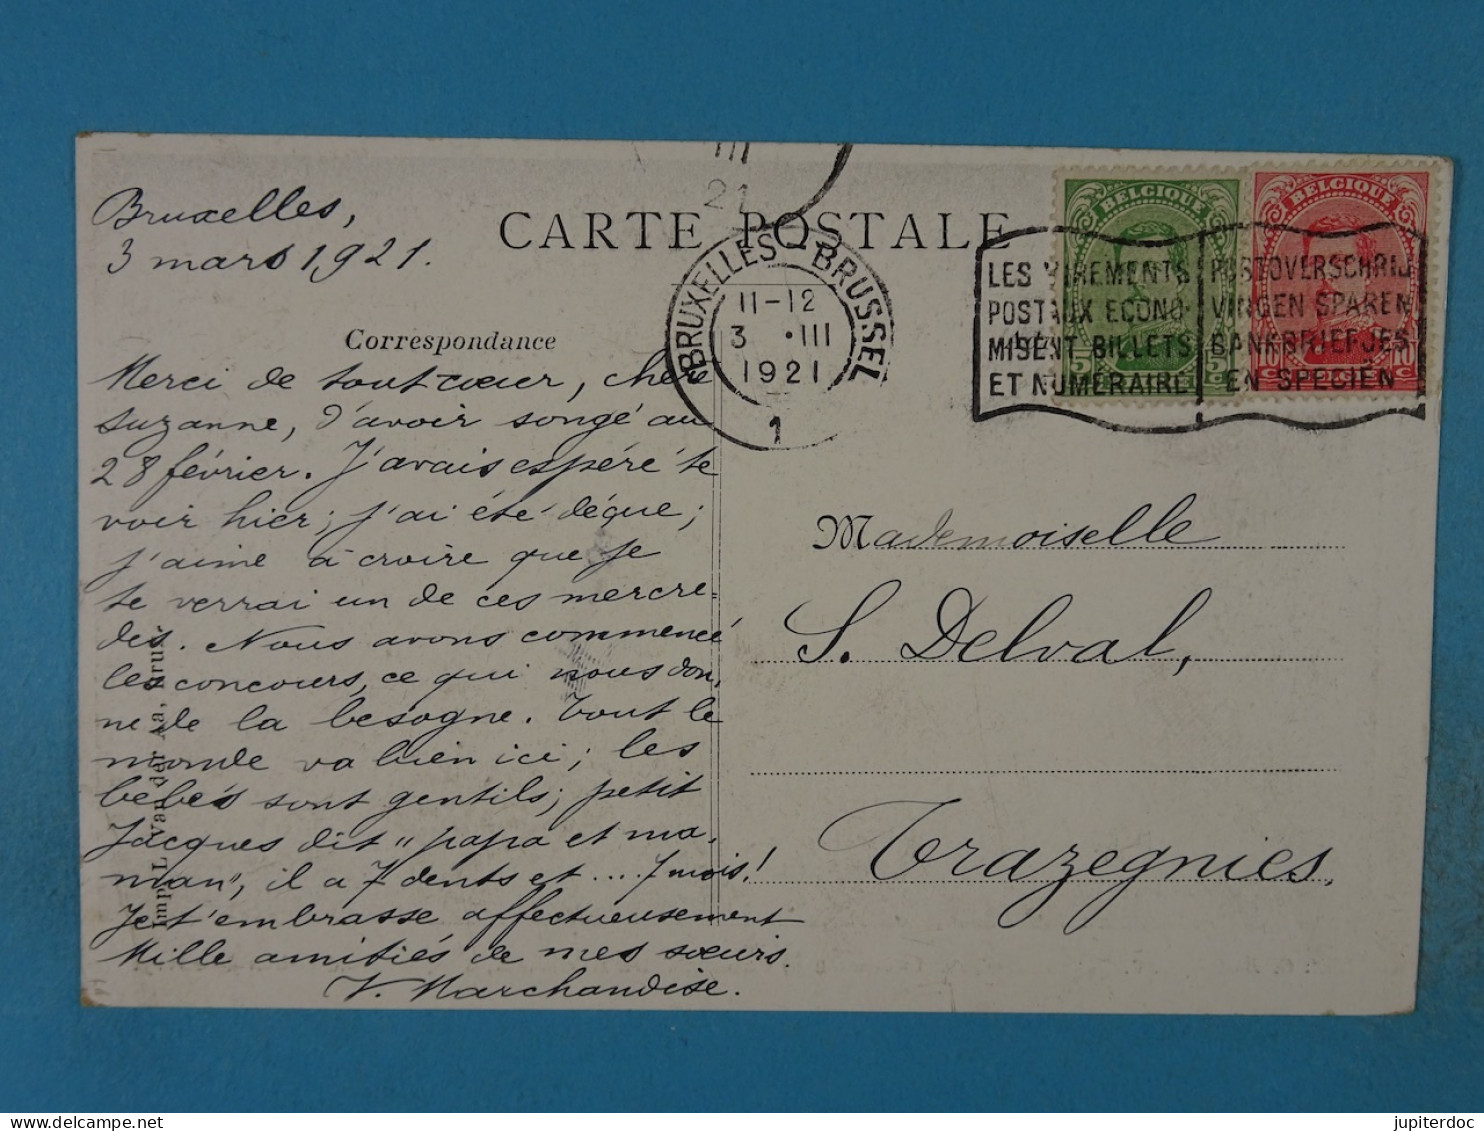 Bruxelles,
3 mars 1921.
III
21
CARTE POSTALE
BRUXELLES - BRUSSEL
11-12
3 · III
1921
1
BELGIQUE
BELGIQUE
LES VIREMENTS
POSTAUX ECONO-
MISENT BILLETS
ET NUMÉRAIRE
POSTOVERSCHRIJ
VINGEN SPAREN
BANKBRIEFJES
EN SPECIEN
Correspondance
Merci de tout cœur, chère
Suzanne, d'avoir songé au
28 février. J'avais espéré te
voir hier; j'ai été déçue;
j'aime à croire que je
te verrai un de ces mercre-
dis. Nous avons commencé
les concours, ce qui nous don-
ne de la besogne. Tout le
monde va bien ici; les
bébés sont gentils; petit
Jacques dit "papa et ma-
man", il a 7 dents et .... 7 mois!
Je t'embrasse affectueusement
Mille amitiés de mes sœurs.
V. Marchandise.
Mademoiselle
S. Delval,
Trazegnies.
Imp. L. van der Aa, Brux.
jupiterdoc